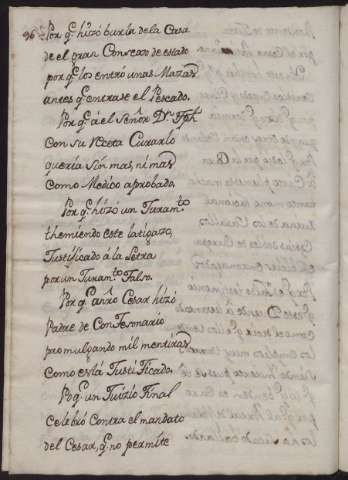 96 Por q.e hizo burla de la Casa
de el gran Consexo de estado
por q.e los entró unas Mazas
antes q.e entrase el Pescado.
Por q.e á el Señor D.n Fph.
con su Rezeta Curarlo
queria sin mas, ni mas
como Medico aprobado,
Por q.e hizo un Juram.to
themiendo este latigazo,
Justificado á la Letra
por un Juram.to Falso.
Por q.e a nro Cesar hizo
Padre de Confesonario
promulgando mil mentiras
como está Justificado.
Poq.e un Juizio Final
celebró Contra el mandato
del Cesar, q.e no permite